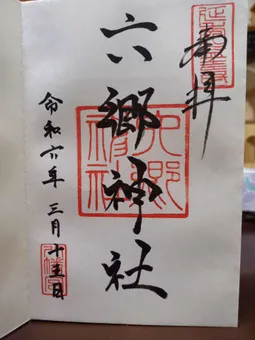 奉拝
六郷神社
六郷神社
令和六年三月十五日